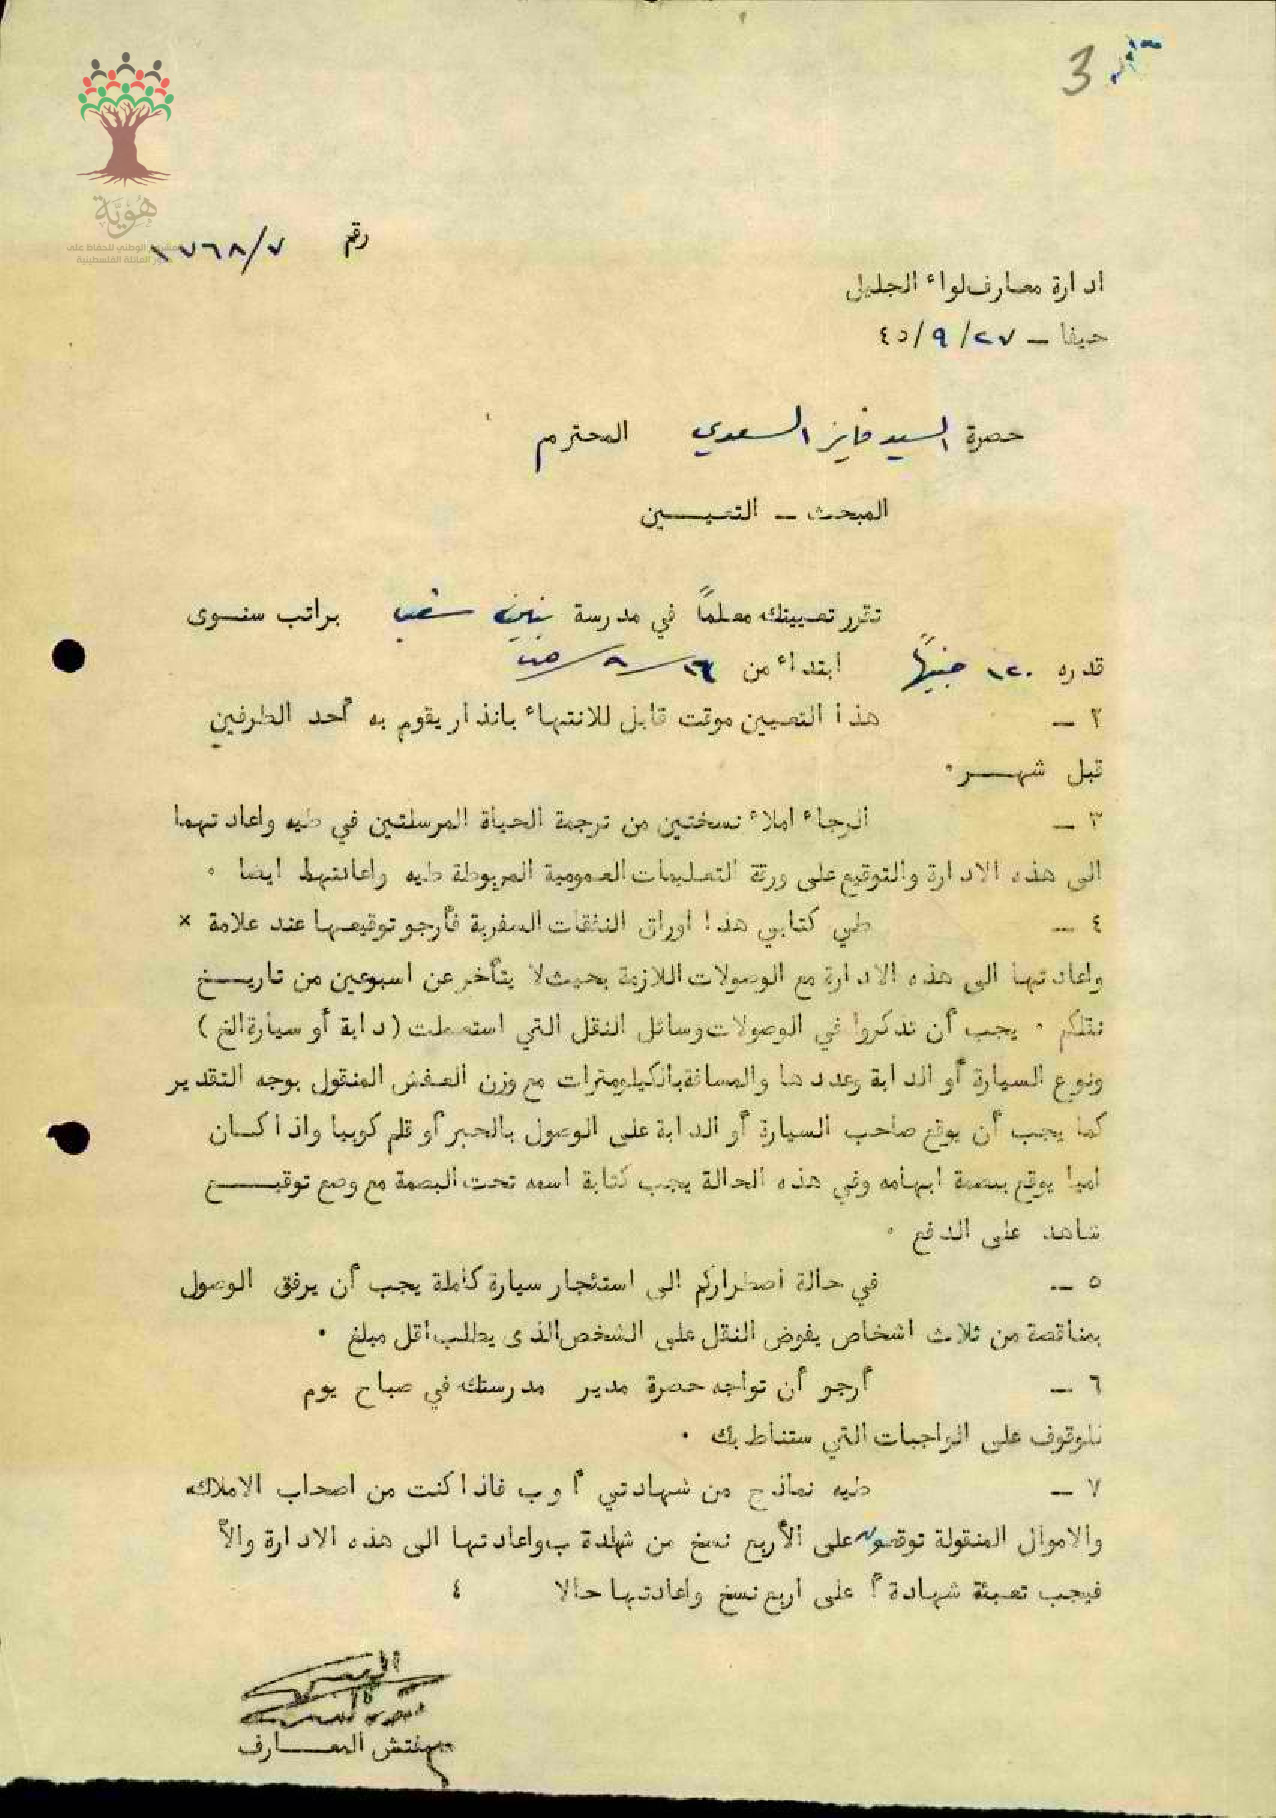 3
هُوِيَّة
المشروع الوطني للحفاظ على
جذور العائلة الفلسطينية
رقم ١٧٦٨/٧
ادارة معارف لواء الجليل
حيفا – ٢٧/٩/٤٥
حضرة السيد فايز السعدي المحترم
المبحث – التعيـــين
تقرر تعيينك معلماً في مدرسة بنين شعب براتب سنــوى
قدره ١٢٠ جنيهاً ابتداء من ١٦/٩/٤٥
٢ – هذا التعيين موقت قابل للانتهاء بانذار يقوم به أحد الطرفين
قبل شهــر٠
٣ – الرجاء املاء نسختين من ترجمة الحياة المرسلتين في طيه واعادتهما
الى هذه الادارة والتوقيع على ورقة التعليمات العمومية المربوطة طيه واعادتها ايضا ٠
٤ – طي كتابي هذا اوراق النفقات السفرية فأرجو توقيعها عند علامة ×
واعادتها الى هذه الادارة مع الوصولات اللازمة بحيث لا يتأخر عن اسبوعين من تاريــخ
نقلكم ٠ يجب أن تذكروا في الوصولات وسائل النقل التي استعملت (دابة أو سيارة الخ)
ونوع السيارة أو الدابة وعددها والمسافة بالكيلومترات مع وزن العفش المنقول بوجه التقدير
كما يجب أن يوقع صاحب السيارة أو الدابة على الوصول بالحبر أو قلم كوبيا واذا كــان
اميا يوقع ببصمة ابهامه وفي هذه الحالة يجب كتابة اسمه تحت البصمة مع وضع توقيــــع
شاهد على الدفع ٠
٥ – في حالة اضطراركم الى استئجار سيارة كاملة يجب أن يرفق الوصول
بمناقصة من ثلاث اشخاص يفوض النقل على الشخص الذى يطلب اقل مبلغ ٠
٦ – أرجو أن تواجه حضرة مدير مدرستك في صباح يوم
للوقوف على الواجبات التي ستناط بك ٠
٧ – طيه نماذج من شهادتي أ وب فاذا كنت من اصحاب الاملاك
والاموال المنقولة توقعون على الأربع نسخ من شهادة ب واعادتها الى هذه الادارة والأ
فيجب تعبئة شهادة أ على اربع نسخ واعادتها حالا ٤
مفتش المعــارف